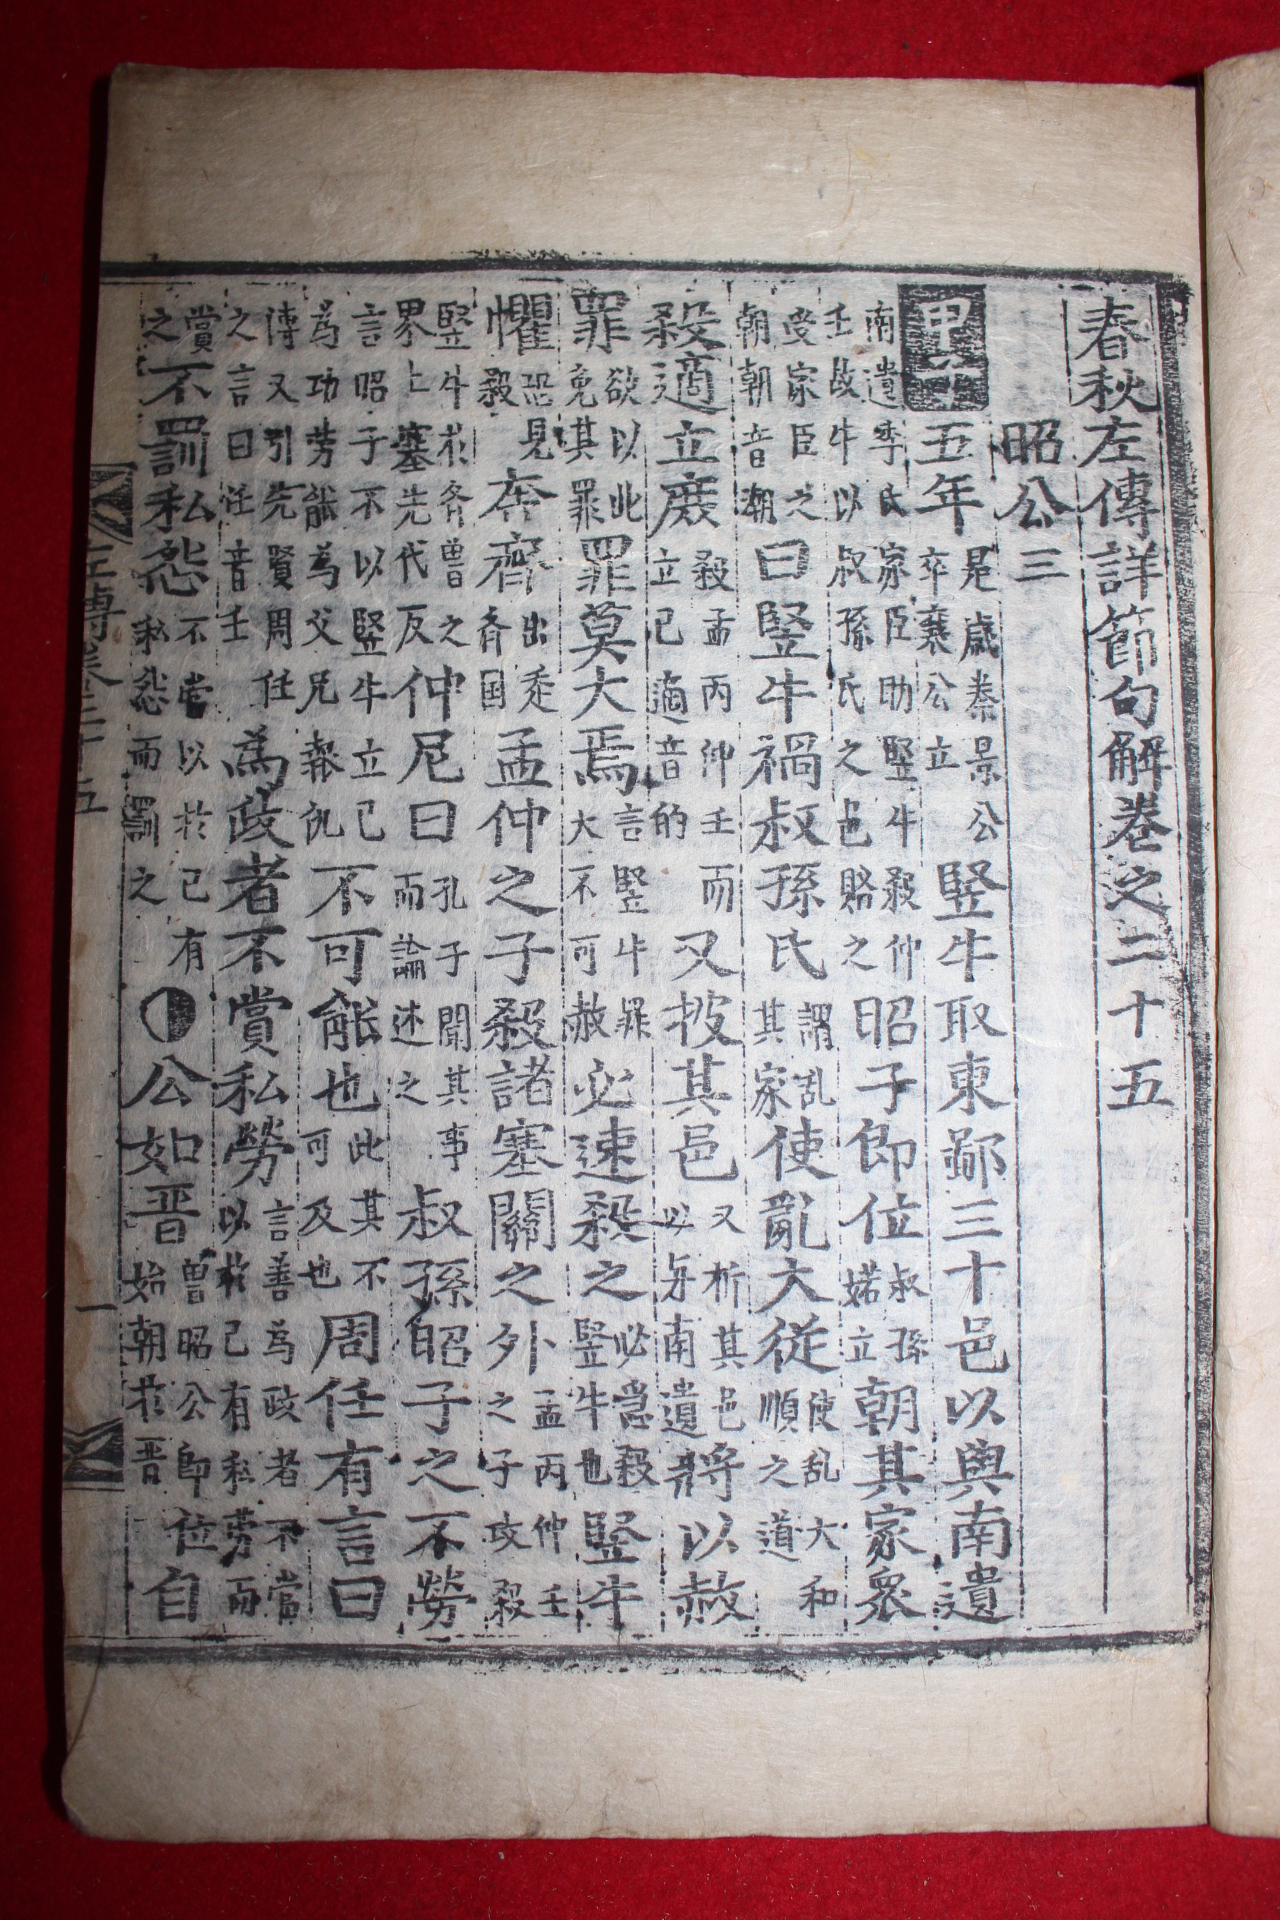 春秋左傳詳節句解卷之二十五
昭公三
甲子五年是歲秦景公卒襄公立豎牛取東鄙三十邑以與南遺
南遺季氏家臣助豎牛殺仲壬故牛以叔孫氏之邑賂之昭子即位叔孫婼立朝其家衆
受家臣之朝朝音潮曰豎牛禍叔孫氏謂乱其家使亂大從使乱大和順之道
殺適立庶殺孟丙仲壬而立己適音的又披其邑又析其邑以与南遺將以赦
罪欲以此免其罪罪莫大焉言豎牛罪大不可赦必速殺之必急殺豎牛也豎牛
懼恐見殺奔齊出走斉国孟仲之子殺諸塞關之外孟丙仲壬之子攻殺
豎牛於斉魯之界上塞先代反仲尼曰孔子聞其事而論述之叔孫昭子之不勞
言昭子不以豎牛立己為功劳能為父兄報仇不可能也此其不可及也周任有言曰
傳又引先賢周任之言曰任音壬為政者不賞私勞言善為政者不當以於己有私劳而
賞之不罰私怨不當以於己有私怨而罰之◐公如晋魯昭公即位始朝於晋自
左傳卷二十五 一